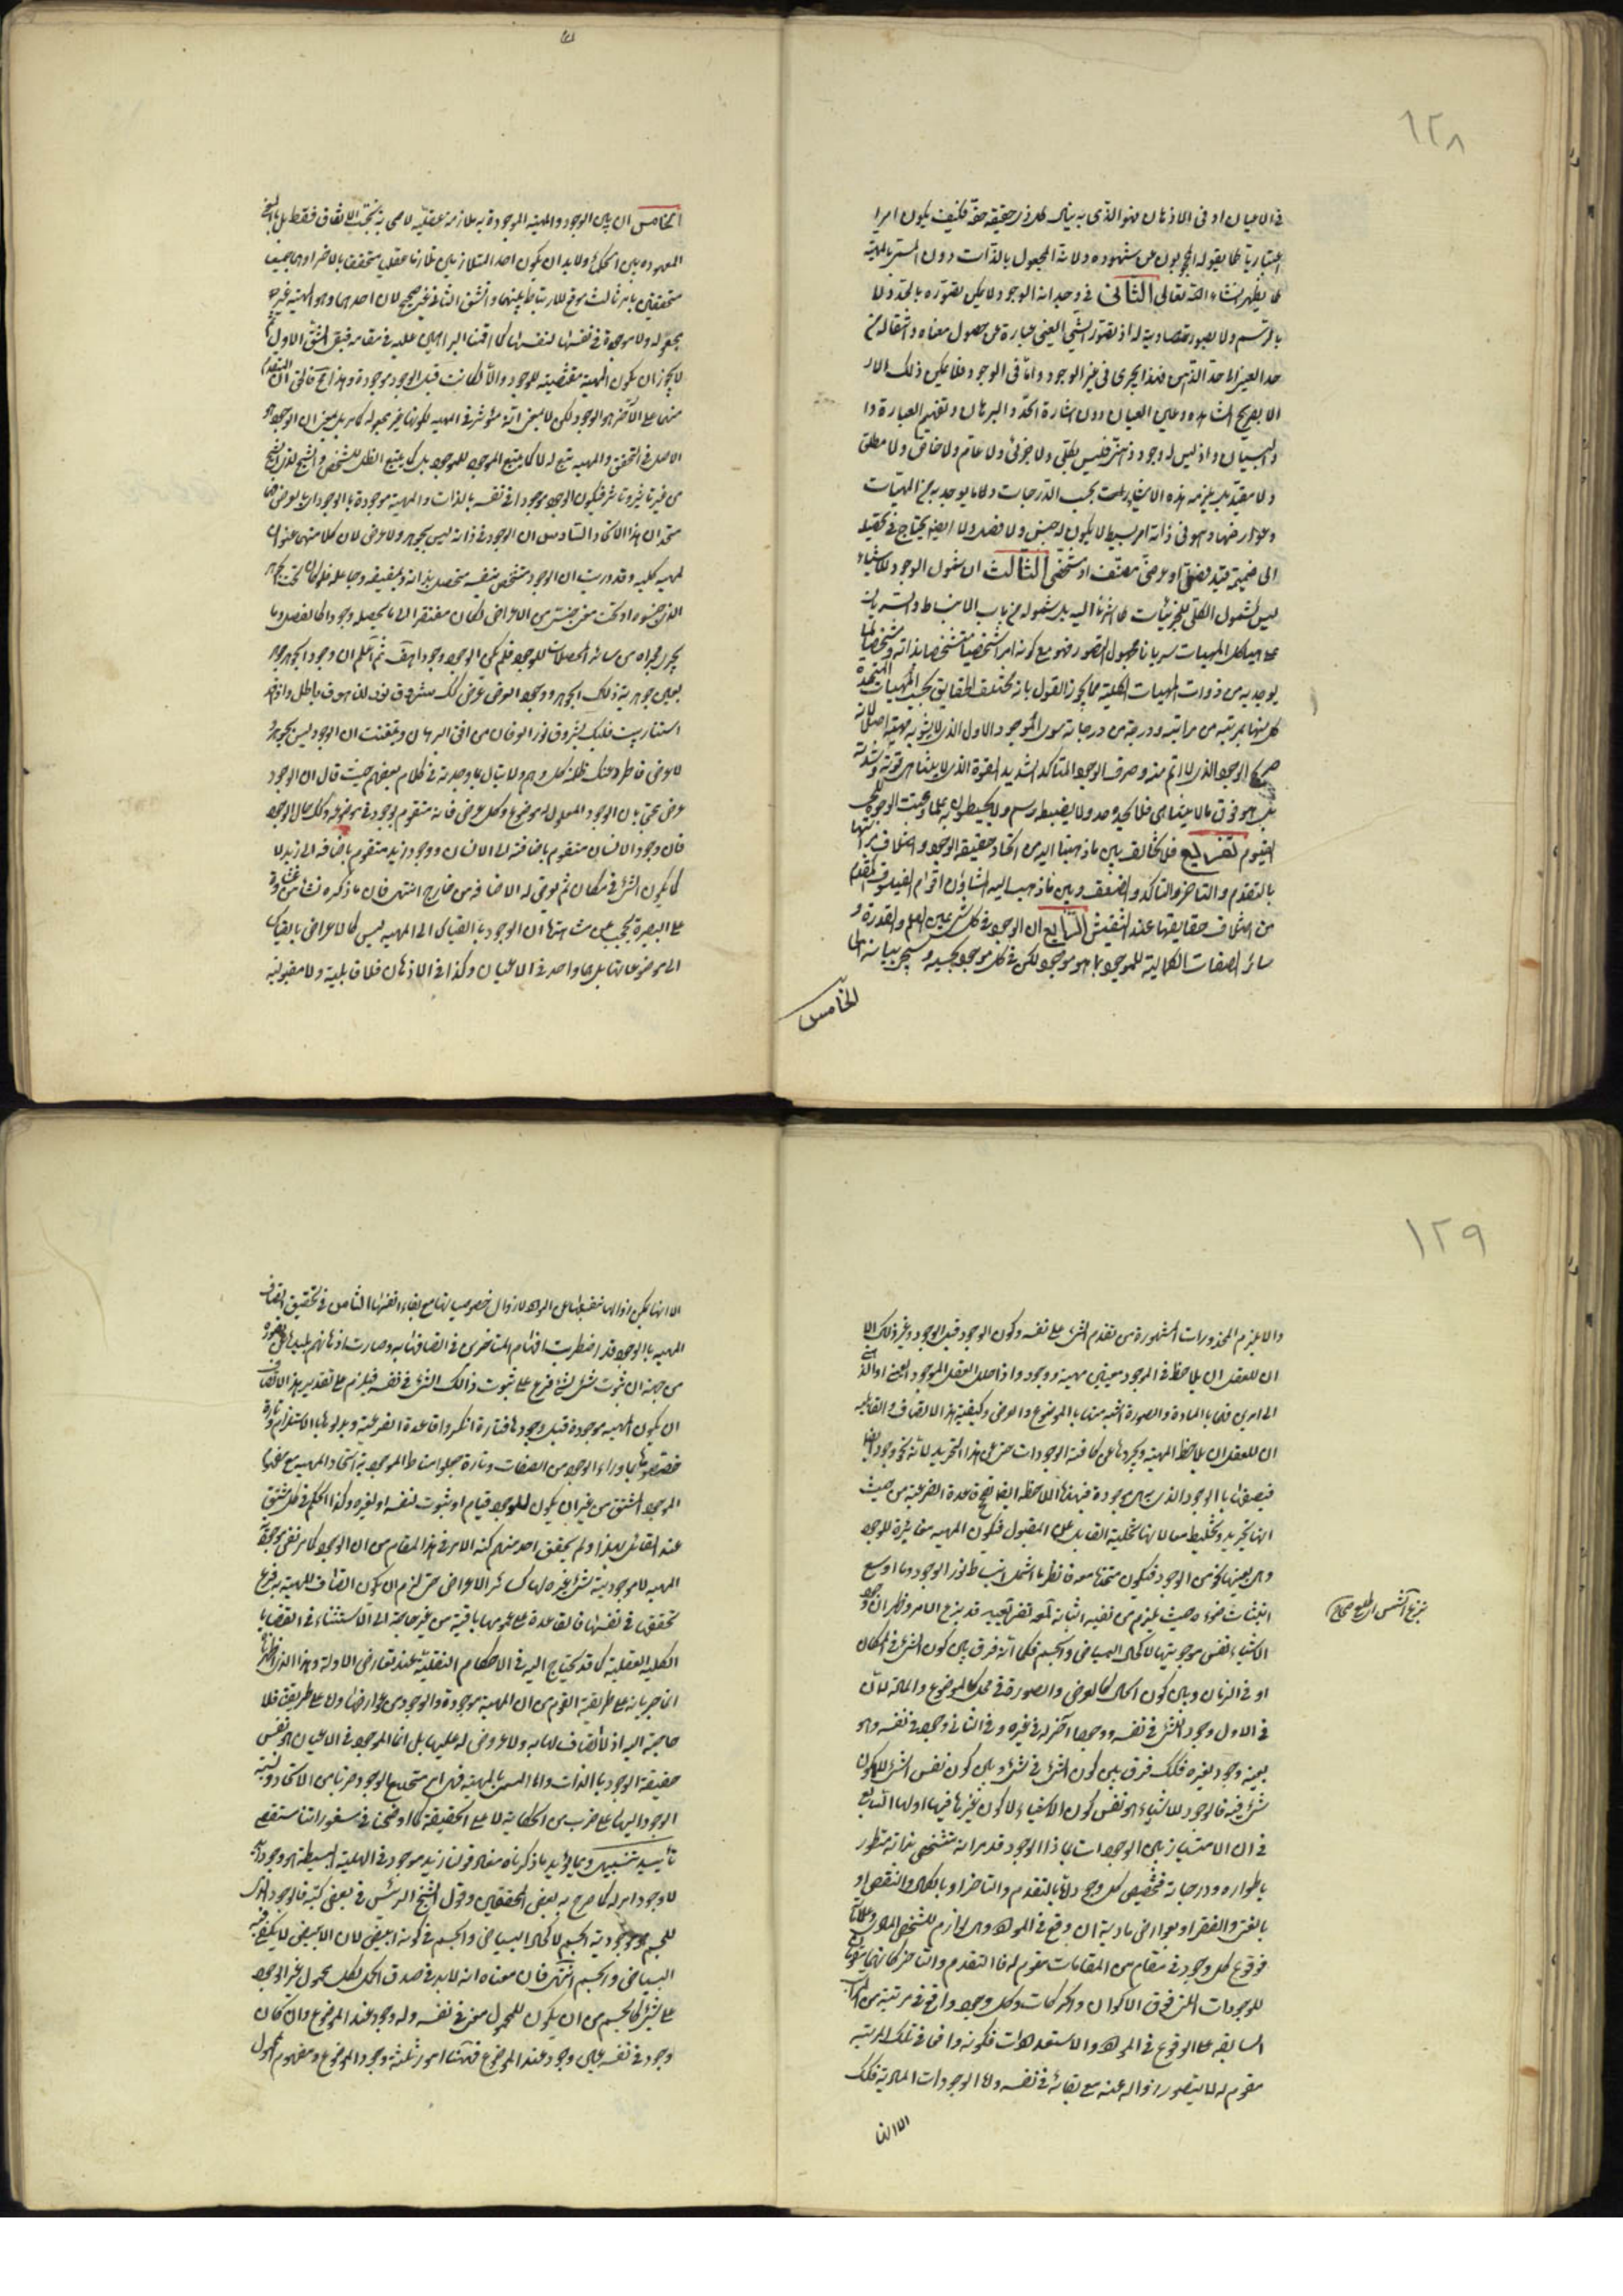 ١٢٨
في الاعيان او في الاذهان فهو الذي به ينال كل ذي حقيقة حقه فكيف يكون امرا
اعتباريا كما يقوله المحجوبون عن شهوده ولانه المجعول بالذات دون المسمى بالمهية
كما يظهر انشاء الله تعالى الثاني في وجدانه الوجود لا يمكن تصوره بالحد ولا
بالرسم ولا بصورة مساوية له اذ تصور الشيء العيني عبارة عن حصول معناه وانتقاله من
حد العين الى حد الذهن فهذا يجري في غير الوجود واما في الوجود فلا يمكن ذلك الا
الا بصريح المشاهدة وعين العيان دون اشارة الحد والبرهان وتفهيم العبارة وا
والبيان واذ ليس له وجود ذهني فليس بكلي ولا جزئي ولا عام ولا خاص ولا مطلق
ولا مقيد بل يلزمه هذه الاشياء بحسب الدرجات ولا ما يوجد به من المهيات
وعوارضها وهو في ذاته امر بسيط لا يكون له جنس ولا فصل ولا ايضا يحتاج في تحصله
الى ضميمة قيد فصلي او عرضي مصنف او مشخص الثالث ان شمول الوجود للاشياء
ليس كشمول الكلي للجزئيات كما اشرنا اليه بل شموله من باب الانبساط والسريان
على هياكل المهيات سريانا مجهول التصور فهو مع كونه امرا شخصيا متشخصا بذاته ومشخصا لما
يوجد به من ذوات المهيات الكلية مما يجوز القول بانه مختلف الحقايق بحسب المهيات المتحدة
كل منها بمرتبة من مراتبه ودرجة من درجاته سوى الموجود الاول الذي لا يشوبه مهية اصلا لانه
صريح الوجود الذي لا اتم منه وصرف الوجود المتاكد الشديد القوة الذي لا يتناهى قوته وشدته
بل هو فوق ما لا يتناهى فلا يحده حد ولا يضبطه رسم ولا يحيطون به علما وعنت الوجوه للحي
القيوم تفريع فلا تخالف بين ما ذهبنا اليه من اتحاد حقيقة الوجود واختلاف مراتبها
بالتقدم والتاخر والتاكد والضعف وبين ما ذهب اليه المشاؤن اقوام الفيلسوف المقدم
من اختلاف حقايقها عند التفتيش الرابع ان الوجود في كل شيء عين العلم والقدرة و
سائر الصفات الكمالية للموجود بما هو موجود لكن في كل موجود بحسبه وسيجيء بيانه
الخامس
الخامس ان بين الوجود والمهية الموجودة به ملازمة عقلية لا صحابة بحسب الاتفاق فقط بل بالمعنى
المعهود بين الحكماء ولا بد ان يكون احد المتلازمين تلازما عقليا متحققا بالاخر او هما جميعا
متحققين بامر ثالث موقع للارتباط بينهما والشق الثاني غير صحيح لان احدهما وهو المهية غير
مجعولة ولا موجودة في نفسها لنفسها كما اقمنا البراهين عليه في مقامه فبقي الشق الاول
لا يجوز ان يكون المهية مقتضية للوجود والا لكانت قبل الوجود موجودة وهذا مح فالحق ان المتقدم
منهما على الآخر هو الوجود لكن لا بمعنى انه مؤثر في المهية لكونها غير مجعولة كما مر بل بمعنى ان الوجود هو
الاصل في التحقق والمهية تبع له لا كما يتبع الموجود للموجود بل كما يتبع الظل للشخص والشبح لذي الشبح
من غير تاثير وتاثر فيكون الوجود موجودا في نفسه بالذات والمهية موجودة بالوجود اي بالعرض فهما
متحدان هذا الاتحاد السادس ان الوجود في ذاته ليس بجوهر ولا عرض لان كلا منهما عنوان
لمهية كلية وقد دريت ان الوجود متشخص بنفسه متحصل بذاته وبمفيضه وجاعله فلو كان تحت الجوهر
الذي هو جنسه او تحت معنى جنسي من الاعراض لكان مفتقرا الى ما يحصله وجودا كالفصل وما
يجري مجراه من سائر المحصلات للوجود فلم يكن الوجود وجودا هف ثم اعلم ان وجود الجوهر
بعينه جوهرية ذلك الجوهر ووجود العرض عرض كذلك
استنارت قلبك بشروق نور العرفان من افق البرهان وتيقنت ان الوجود ليس بجوهر
لا عرض فاطرد عنك ظلمة كل وهم ولا تبال بما وجدته في كلام بعضهم حيث قال ان الوجود
عرض محتج بان الوجود المعلول له موضوع وكل عرض فانه متقوم بوجوده في موضوعه وكذلك حال الوجود
فان وجود الانسان متقوم باضافته الى الانسان ووجود زيد متقوم باضافته الى زيد لا
كما يكون الشيء في مكان ثم يعرض له الاضافة من خارج انتهى فان ما ذكره نشأ من غشاوة
على البصيرة يحجب عن مشاهدة ان الوجود بالقياس الى المهية ليس كالاعراض بالقياس
الى موضوعاتها بل هما واحد في الاعيان وكذا في الاذهان فلا قابلية ولا مقبولية
١٢٩
والا يلزم المحذورات المشهورة من تقدم الشيء على نفسه وكون الوجود قبل الوجود وغير ذلك الا
ان للعقل ان يلاحظ في الموجود معنيين مهية ووجود واذا حلل العقل الموجود العيني او الذهني
الى امرين فهما بالمادة والصورة اشبه منهما بالموضوع والعرض وكيفية هذا الاتصاف والقابلية
ان للعقل ان يلاحظ المهية ويجردها عن كافة الوجودات حتى عن هذا التجريد لانه نحو وجود ايضا
فيصفها بالوجود الذي هي به موجودة فهذه الملاحظة ايضا تصحح قاعدة الفرعية من حيث
انها تجريد وتخليط معا لانها تخلية القابل عن المقبول فيكون المهية مغائرة للوجود
وهي بعينها نحو من الوجود فيكون متحدة معه فانظر ما اشمل انبساط نور الوجود وما اوسع
انبثاث ضوئه حيث يلزم من نفيه اثباته لمعة تفريعية قد بزغ الامر وظهر ان وجود
بزغ الشمس اي طلع صحاح
الاشياء نفس موجوديتها لا كحال البياض والجسم فكما انه فرق بين كون الشيء في المكان
او في الزمان وبين كون الحال كالعرض والصورة في محل كالموضوع والمادة لان
في الاول وجود للشيء في نفسه ووجودا آخر له في غيره وفي الثاني وجوده في نفسه وهو
بعينه وجوده لغيره فكذلك فرق بين كون الشيء في شيء وبين كون نفس الشيء لا لكون
شيء فيه فالوجود للاشياء هو نفس كون الاشياء لا كون غيرها فيها اولها السابع
في ان الامتياز بين الوجودات بماذا الوجود قد مر انه متشخص بذاته متطور
باطواره ودرجاته فتخصيص كل وجود اما بالتقدم والتاخر او بالكمال والنقص او
بالغنى والفقر او بعوارض مادية ان وقع في المواد وهي لوازم للشخص المادي وعلاماته
فوقوع كل وجود في مقام من المقامات مقوم له فالتقدم والتاخر كانهما مقومان
للوجودات التي فوق الاكوان والحركات وكل وجود واقع في مرتبة من المراتب
السابقة على الوقوع في المواد والاستعدادات فكونه واقعا في تلك المرتبة
مقوم له لا يتصور زواله عنه مع بقائه في نفسه واما الوجودات المادية فكذلك
الا انها
الا انها يمكن زوالها عن المواد لا زوال خصوصياتها مع بقاء انفسها الثامن في تحقيق اتصاف
المهية بالوجود قد اضطربت افهام المتاخرين في اتصافها به وصارت اذهانهم بليدة عن تصوره
من جهة ان ثبوت شيء لشيء فرع على ثبوت ذلك الشيء في نفسه فيلزم على تقدير هذا الاتصاف
ان يكون المهية موجودة قبل وجودها فتارة انكروا قاعدة الفرعية وبدلوها بالاستلزام وتارة
خصصوها بما وراء الوجود من الصفات وتارة جعلوا مناط الموجودية اتحاد المهية مع مفهوم
الموجود المشتق من غير ان يكون للوجود قيام او ثبوت لنفسه او لغيره وكذا الحكم في كل مشتق
عند القائل بهذا ولم يحقق احد منهم كنه الامر في هذا المقام من ان الوجود كما مر نفس موجودية
المهية لا موجودية شيء غيره لها كسائر الاعراض حتى لزم ان يكون اتصاف المهية به فرع
تحققها في نفسها فالقاعدة على عمومها باقية من غير حاجة الى الاستثناء في القضايا
الكلية العقلية كما قد يحتاج اليه في الاحكام النقلية عند تعارض الادلة وهذا الذي
انما جريانه على طريقة القوم من ان المهية موجودة والوجود من عوارضها واما على طريقتنا فلا
حاجة اليه اذ لا اتصاف لها به ولا عروض له عليها بل انما الموجود في الاعيان هو نفس
حقيقة الوجود بالذات واما المسمى بالمهية فهي امر متحد مع الوجود ضربا من الاتحاد ونسبة
الوجود اليها على ضرب من الحكاية لا على الحقيقة كما اوضحنا في سفرنا
تأييد تنبيهي ومما يؤيد ما ذكرناه من ان مفاد قولنا زيد موجود في الهلية البسيطة هو وجود زيد
لا وجود امر له كما صرح به بعض المحققين وقول الشيخ الرئيس في بعض كتبه فالوجود الذي
للجسم هو موجودية الجسم لا كحال البياض والجسم في كونه ابيض لان الابيض لا يكفي فيه
البياض والجسم انتهى فان معناه انه لا بد في صدق الحمل لكل محمول غير الوجود
على شيء كالجسم من ان يكون للمحمول معنى في نفسه وله وجود عند الموضوع وان كان
وجوده في نفسه عين وجوده عند الموضوع فهنا امور ثلثة وجود الموضوع ومفهوم المحمول